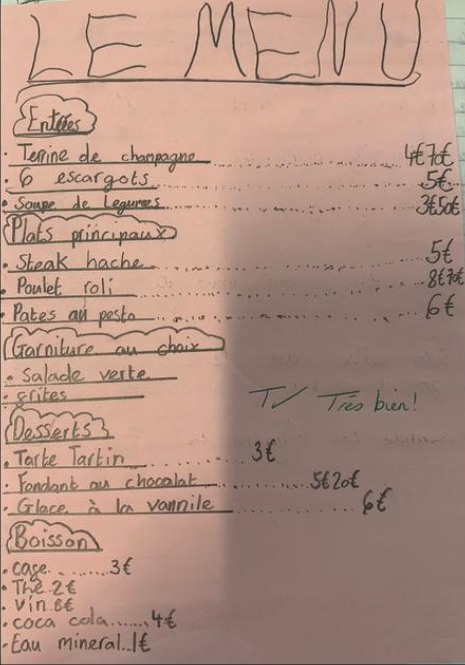 LE MENU
Entrées
• Terrine de champagne ........ 4€70€
• 6 escargots ........ 5€
• Soupe de Legumes ........ 3€50€
Plats principaux
• Steak hache ........ 5€
• Poulet roli ........ 8€70€
• Pates au pesto ........ 6€
Garniture au choix
• Salade verte
• frites
T✓ Très bien!
Desserts
• Tarte Tartin ........ 3€
• Fondant au chocolat ........ 5€20€
• Glace à la vannile ........ 6€
Boisson
• cage ........ 3€
• Thé 2€
• Vin 8€
• coca cola ........ 4€
• Eau mineral..1€